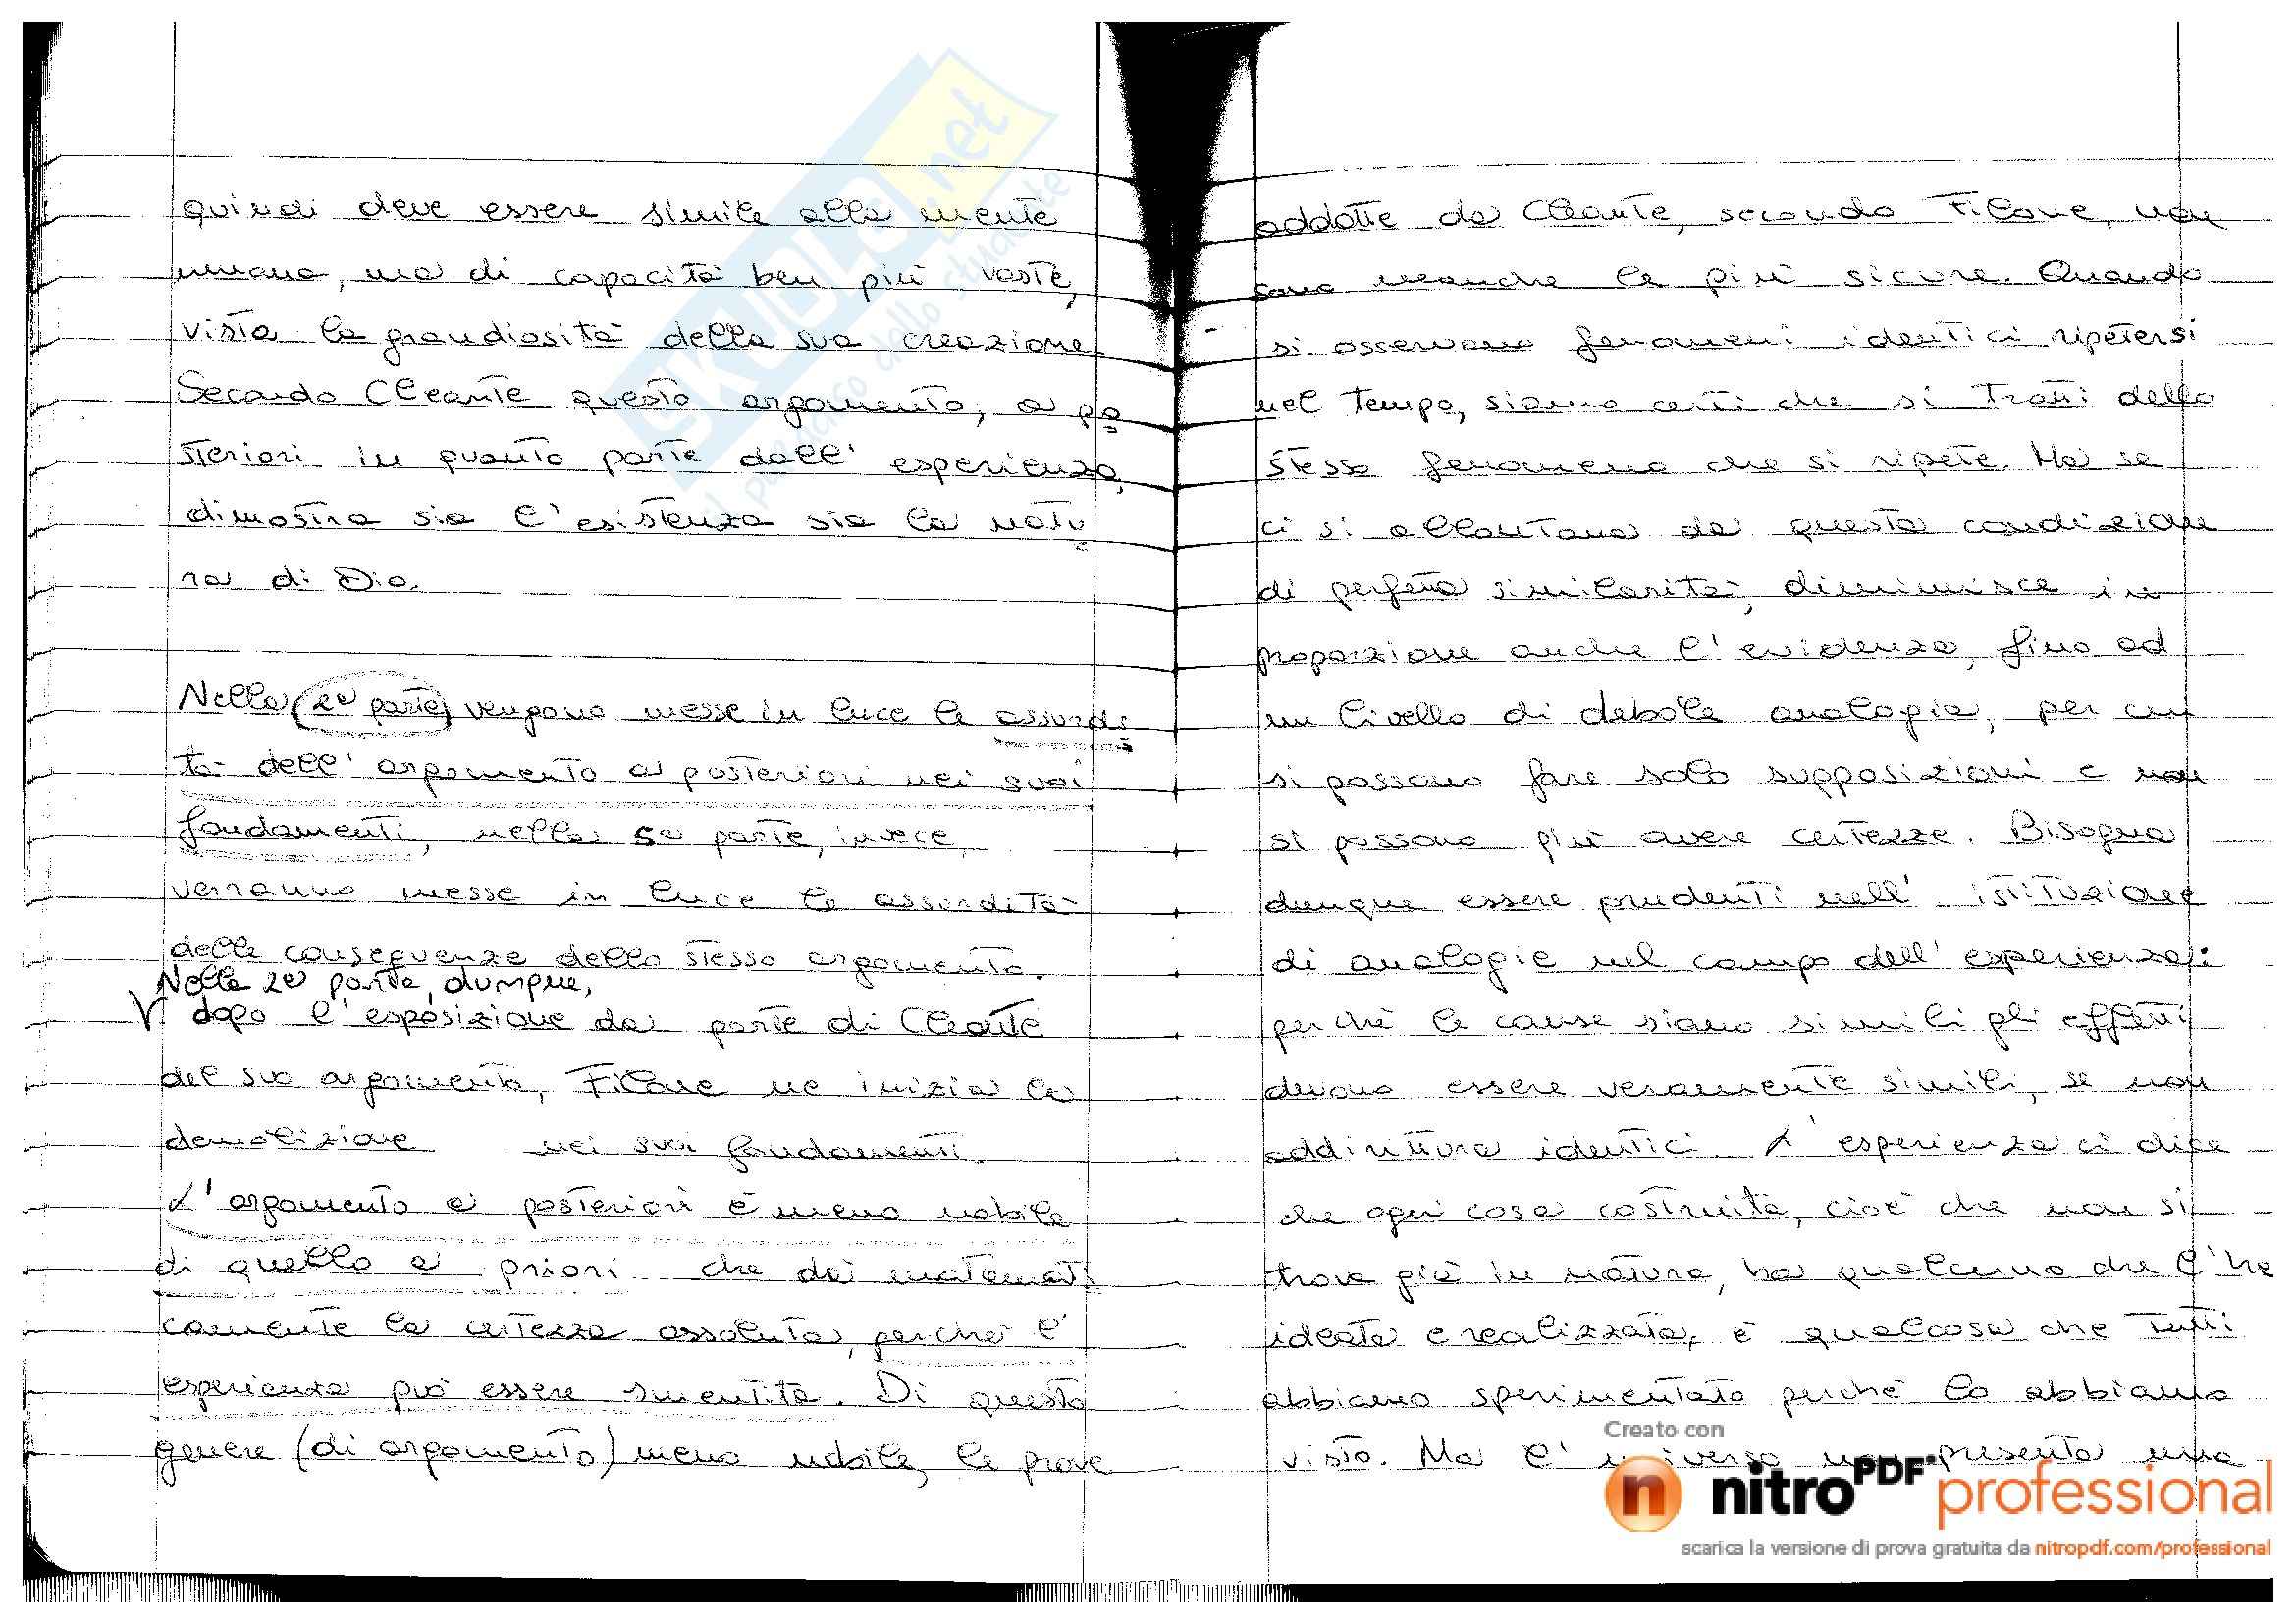 quindi deve essere simile alla mente
umana, ma di capacità ben più vaste,
vista la grandiosità della sua creazione.
Secondo Cleante questo argomento, a po
steriori in quanto parte dall'esperienza,
dimostra sia l'esistenza sia la natu
ra di Dio.
Nella 2a parte vengono messe in luce le assurdi
tà dell'argomento a posteriori nei suoi
fondamenti, nella 5a parte, invece,
verranno messe in luce le assurdità
delle conseguenze dello stesso argomento.
Nella 2a parte, dunque,
V dopo l'esposizione da parte di Cleante
del suo argomento, Filone ne inizia la
demolizione nei suoi fondamenti.
L'argomento a posteriori è meno nobile
di quello a priori che dà matemati
camente la certezza assoluta, perché l'
esperienza può essere smentita. Di questo
genere (di argomento) meno nobile, le prove
addotte da Cleante, secondo Filone, non
sono neanche le più sicure. Quando
si osservano fenomeni identici ripetersi
nel tempo, siamo certi che si tratti dello
stesso fenomeno che si ripete. Ma se
ci si allontana da questa condizione
di perfetta similarità, diminuisce in
proporzione anche l'evidenza, fino ad
un livello di debole analogia, per cui
si possono fare solo supposizioni e non
si possono più avere certezze. Bisogna
dunque essere prudenti nell'istituzione
di analogie nel campo dell'esperienza:
perché le cause siano simili gli effetti
devono essere veramente simili, se non
addirittura identici. L'esperienza ci dice
che ogni cosa costruita, cioè che non si
trova già in natura, ha qualcuno che l'ha
ideata e realizzata, è qualcosa che tutti
abbiamo sperimentato perché lo abbiamo
visto. Ma l'universo non presenta una
SKUOLA.net
il paradiso dello studente
Creato con
nitro PDF professional
scarica la versione di prova gratuita da nitropdf.com/professional